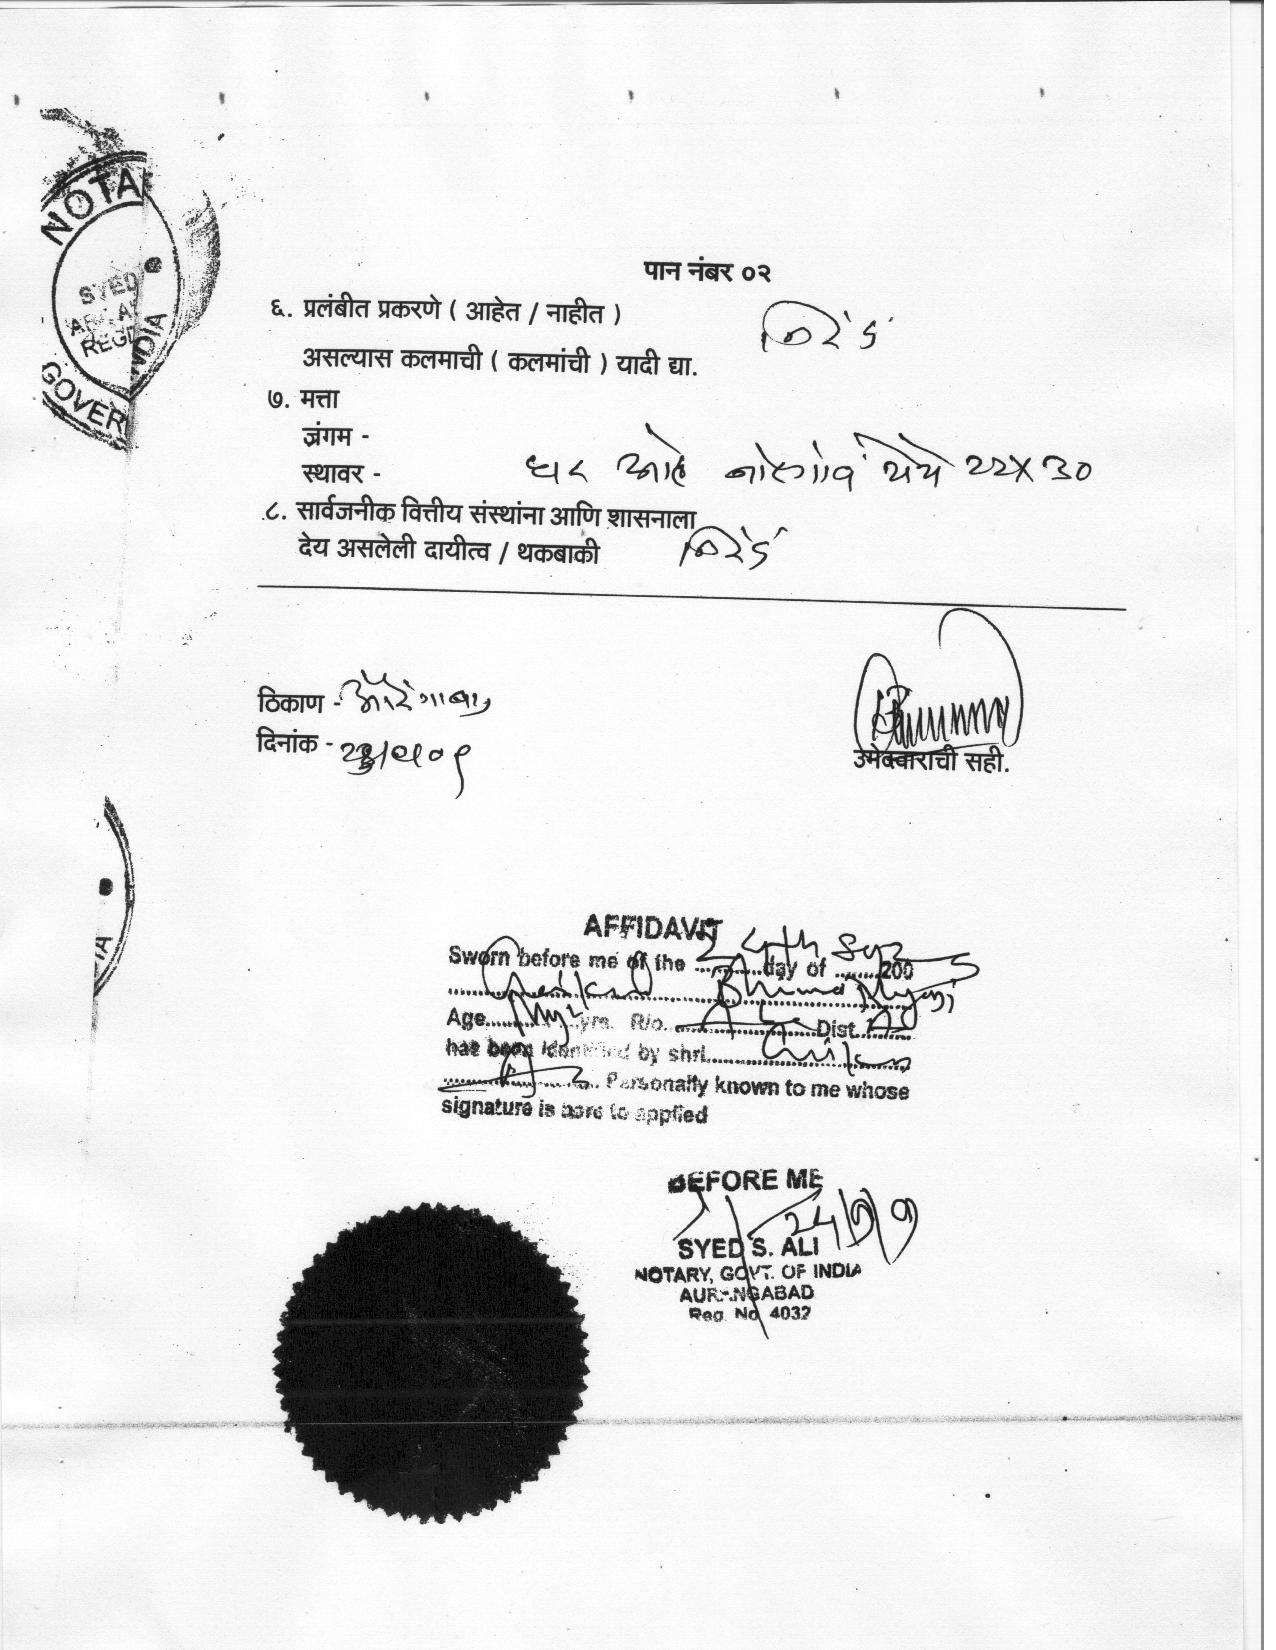 NOTA
SYED
REGD
INDIA
GOVER
पान नंबर ०२
६. प्रलंबीत प्रकरणे ( आहेत / नाहीत ) निरंक
असल्यास कलमाची ( कलमांची ) यादी द्या.
७. मत्ता
जंगम -
स्थावर - घर आहे येथे २२x३०
८. सार्वजनीक वित्तीय संस्थांना आणि शासनाला
देय असलेली दायीत्व / थकबाकी निरंक
ठिकाण - औरंगाबाद
दिनांक -
उमेदवाराची सही.
AFFIDAVIT
Sworn before me of the 24th day of Sep 200
Age yrs. R/o. Dist.
has been identified by shri
Personally known to me whose
signature is here to applied
BEFORE ME
SYED S. ALI
NOTARY, GOVT. OF INDIA
AURANGABAD
Reg. No. 4032